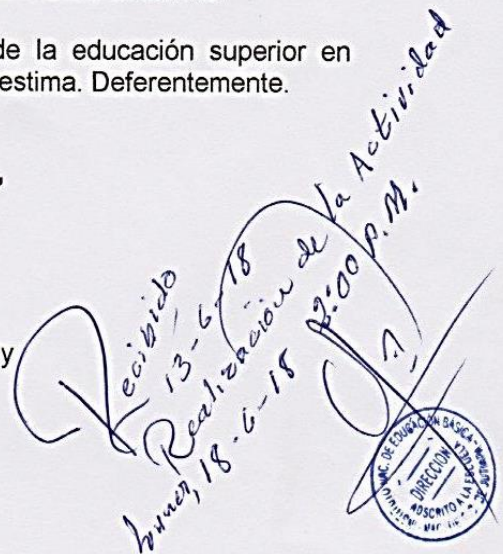 de la educación superior en
estima. Deferentemente.
y
Recibido
13-6-18
Realización de la Actividad
lunes, 18-6-18 2:00 P.M.
NAC. DE EDUCACIÓN BÁSICA
DIRECCIÓN
ADSCRITO A LA